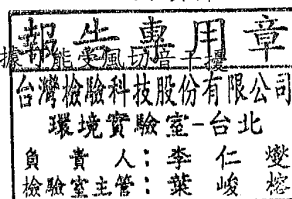 報告專用章
據可能受風切音干擾
台灣檢驗科技股份有限公司
環境實驗室-台北
負責人：李仁燮
檢驗室主管：葉峻榕